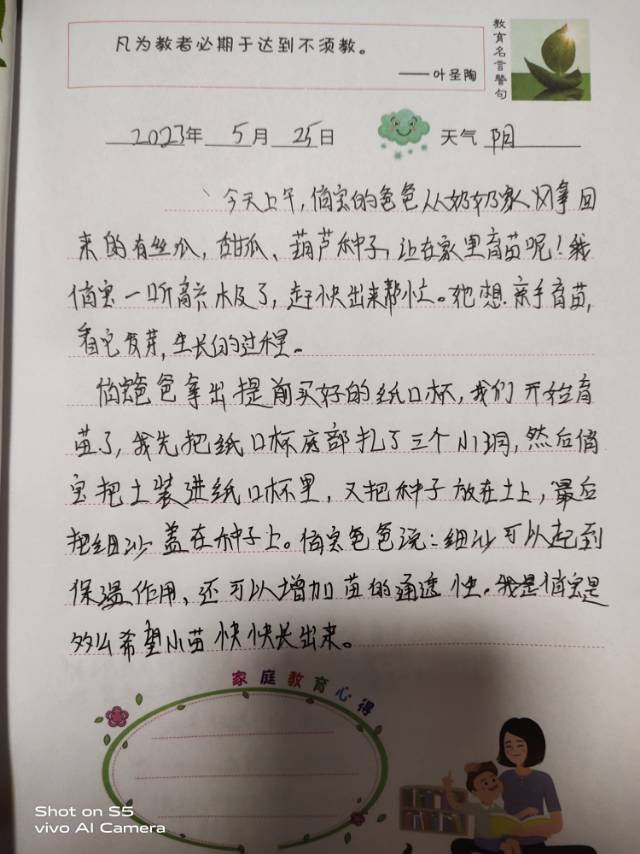 凡为教者必期于达到不须教。
——叶圣陶
教育名言警句
2023年 5月 25日 天气 阴
、今天上午,俏宝的爸爸从奶奶家拿回
来的有丝瓜,甜瓜、葫芦种子,让在家里育苗呢!我
俏宝一听高兴极了,赶快出来帮忙。他想亲手育苗,
看它发芽,生长的过程。
俏宝爸爸拿出提前买好的纸口杯,我们开始育
苗了,我先把纸口杯底部扎了三个小洞,然后俏
宝把土装进纸口杯里,又把种子放在土上,最后
把细沙盖在种子上。俏宝爸爸说:细沙可以起到
保温作用,还可以增加苗的通透性。我是俏宝是
多么希望小苗快快长出来。
家庭教育心得
Shot on S5
vivo AI Camera